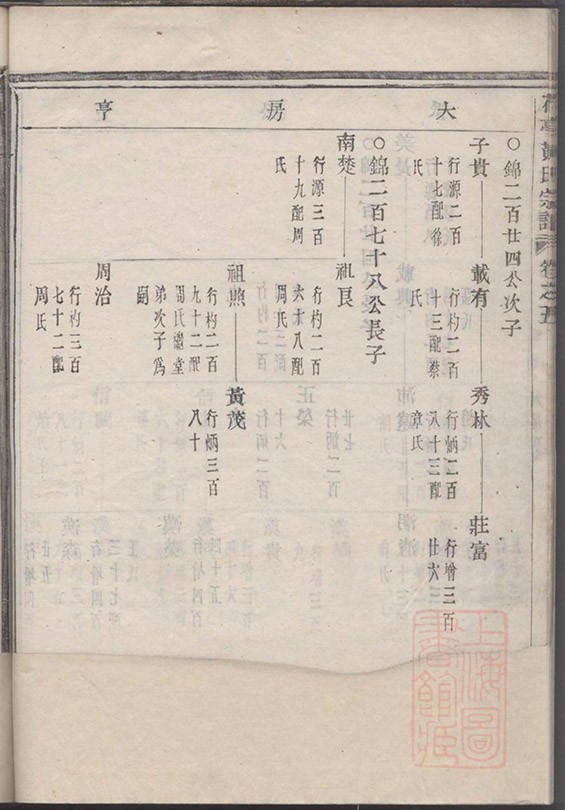 黃氏宗譜 卷之五
大 房 亨
○錦二百廿四公次子
子貴
行源二百
十七配徐
氏
載有
行杓二百
十三配蔡
氏
秀林
行炳二百
八十三配
章氏
莊富
行增三百
廿六
○錦二百七十八公長子
南楚
行源三百
十九配周
氏
祖良
行杓二百
六十八配
周氏
祖煦
行杓二百
九十二配
周氏繼堂
弟次子爲
嗣
黃茂
行炳三百
八十
周治
行杓三百
七十二配
周氏
上海圖
書館藏